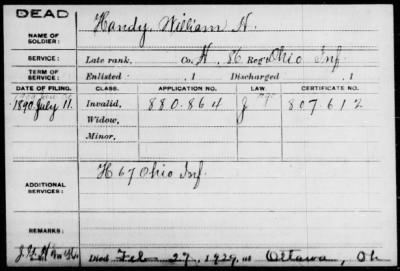 DEAD
NAME OF SOLDIER: Handy, William H.
SERVICE: Late rank, Co. H, 86 Reg't Ohio Inf
TERM OF SERVICE: Enlisted , 1 Discharged , 1
DATE OF FILING. CLASS. APPLICATION NO. LAW. CERTIFICATE NO.
1890 July 11. Invalid, 880.864 J 807.612
Widow,
Minor,
ADDITIONAL SERVICES: H 67 Ohio Inf.
REMARKS:
Died Feb 27, 1929, at Ottawa, Oh